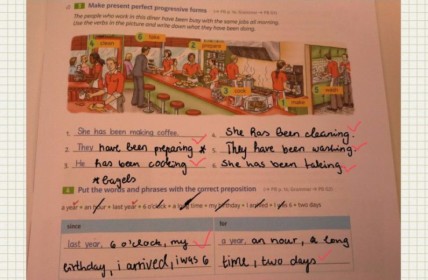 Make present perfect progressive forms
The people who work in this diner have been busy with the same jobs all morning.
Use the verbs in the picture and write down what they have been doing.
4 clean
6 take
2 prepare
3 cook
1 make
5 wash
1. She has been making coffee.
4. She has been cleaning.
2. They have been preparing *
5. They have been washing.
3. He has been cooking
6. She has been taking.
* bagels
Put the words and phrases with the correct preposition
a year • an hour • last year • 6 o'clock • a long time • my birthday • I arrived • I was 6 • two days
since
for
last year, 6 o'clock, my
a year, an hour, a long
birthday, i arrived, i was 6
time, two days